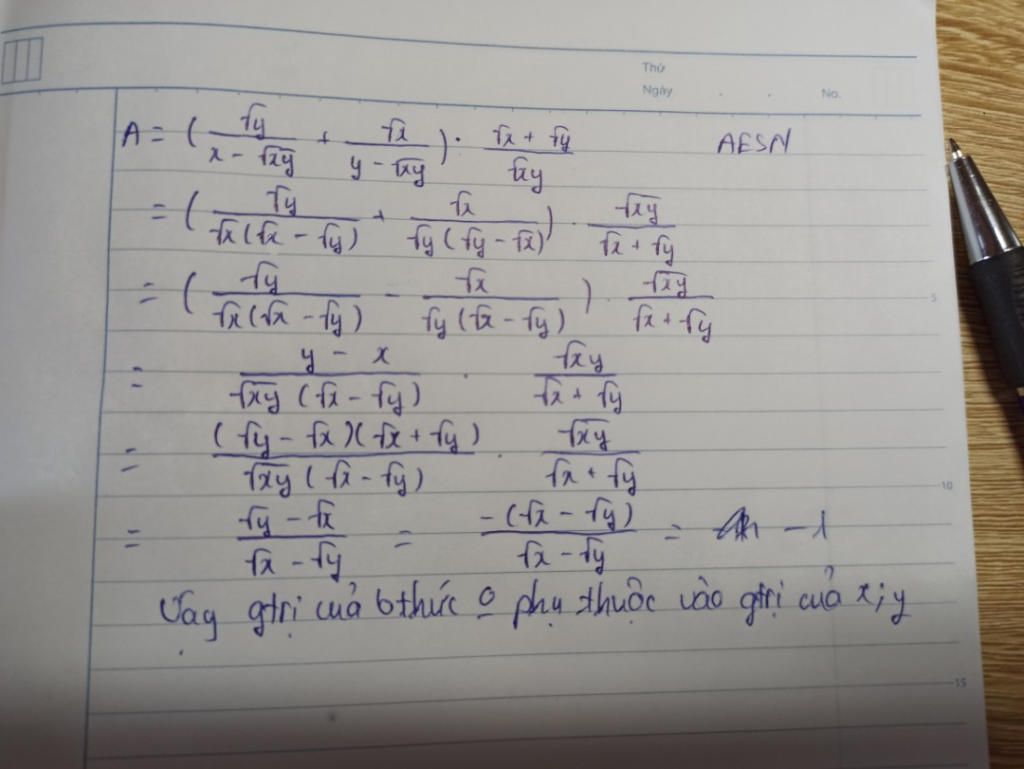 Thứ
Ngày . . No.
A = ( √y / (x - √xy) + √x / (y - √xy) ) . (√x + √y) / √xy AESN
= ( √y / (√x(√x - √y)) + √x / (√y(√y - √x)) ) . √xy / (√x + √y)
= ( √y / (√x(√x - √y)) - √x / (√y(√x - √y)) ) . √xy / (√x + √y)
5
= (y - x) / (√xy (√x - √y)) . √xy / (√x + √y)
= (√y - √x)(√x + √y) / (√xy (√x - √y)) . √xy / (√x + √y)
10
= (√y - √x) / (√x - √y) = -(√x - √y) / (√x - √y) = -1
Vậy gtrị của bthức o phụ thuộc vào gtrị của x; y
15